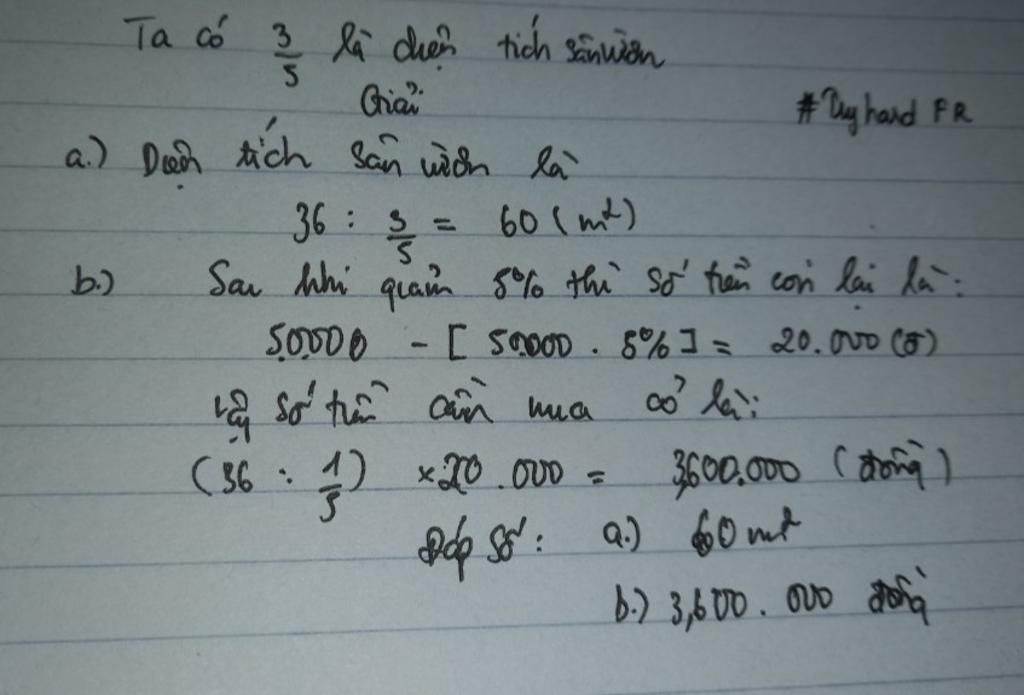 Ta có 3/5 là diện tích sân vườn
Giải
#Tryhard FR
a.) Diện tích sân vườn là
36 : 3/5 = 60 (m²)
b.) Sau khi giảm 5% thì số tiền còn lại là:
50.000 - [ 50.000 . 5% ] = 20.000 (đ)
Vậy số tiền cần mua cỏ là:
(36 : 1/5) × 20.000 = 3,600.000 (đồng)
Đáp số: a.) 60 m²
b.) 3,600.000 đồng